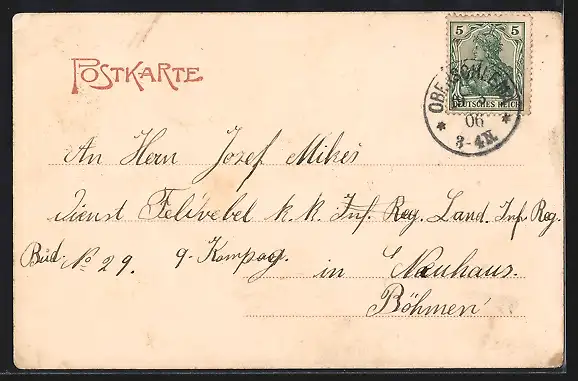 POSTKARTE
5 5
DEUTSCHES REICH
06
3-4N.
An Herrn Josef Mikeš
Dienst Felwebel k. k. Inf. Reg. Land. Inf. Reg.
Bud. No 29. 9. Kompag in Neuhaus.
Böhmen